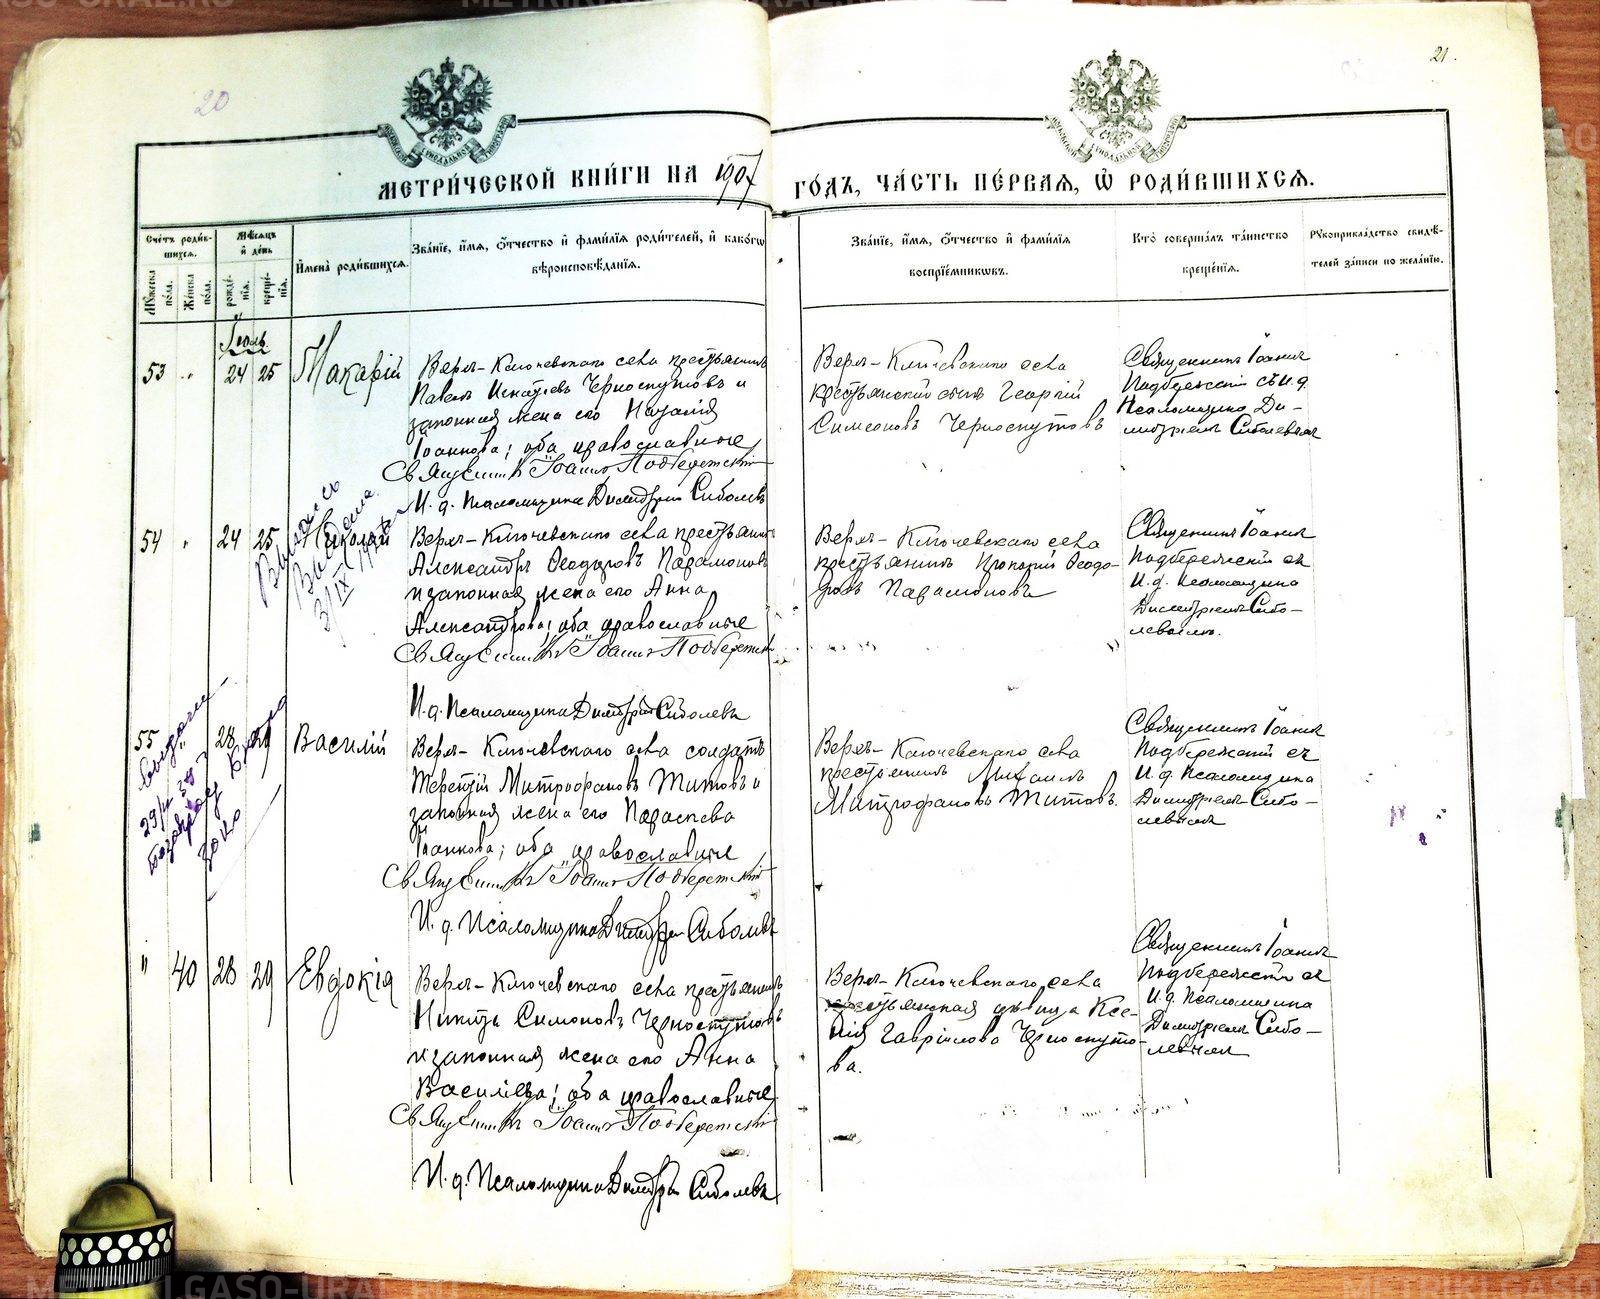 20
21.
МЕТРИ́ЧЕСКОЙ КНИ́ГИ НА 1907
ГО́ДЪ, ЧА́СТЬ ПЕ́РВАЯ, Ѽ РОДИ́ВШИХСЯ.
Сче́тъ роди́в-
шихся.
Му́жеска по́ла.
Же́нска по́ла.
Мѣ́сяцъ
и҆ де́нь
рожде́-
нїя.
креще́-
нїя.
И҆мена̀ роди́вшихся.
Зва́нїе, и҆́мя, ѻ҆́тчество и҆ фами́лїя роди́телей, и҆ како́гѡ
вѣроисповѣ́данїя.
Зва́нїе, и҆́мя, ѻ҆́тчество и҆ фами́лїя
воспрїе́мникѡвъ.
Кто̀ соверша́лъ та́инство
креще́нїя.
Рꙋкоприкла́дство свидѣ́-
телей за́писи по жела́нїю.
Іюль
53 " 24 25 Макарій
Верх-Ключевскаго села крестьянинъ
Павелъ Игнатіевъ Черноскутовъ и
законная жена его Наталія
Іоаннова; оба православные
Священникъ Іоаннъ Подбережскій
И. д. Псаломщика Димитрій Соболевъ
Верх-Ключевскаго села
крестьянскій сынъ Георгій
Симеоновъ Черноскутовъ
Священникъ Іоаннъ
Подбережскій съ И. д.
Псаломщика Ди-
митріемъ Соболевымъ
54 " 24 25 Николай
Верх-Ключевскаго села крестьянинъ
Александръ Ѳеодоровъ Парамоновъ
и законная жена его Анна
Александрова; оба православные
Священникъ Іоаннъ Подбережскій
И. д. Псаломщика Димитрій Соболевъ
Верх-Ключевскаго села
крестьянинъ Ѳеодо-
ровъ Парамоновъ
Священникъ Іоаннъ
Подбережскій съ
И. д. Псаломщика
Димитріемъ Собо-
левымъ.
Выпись
Выдана
55 " 28 29 Василій
Верх-Ключевскаго села солдатъ
Терентій Митрофановъ Титовъ и
законная жена его Параскева
Іоаннова; оба православные
Священникъ Іоаннъ Подбережскій
И. д. Псаломщика Димитрій Соболевъ
Верх-Ключевскаго села
крестьянинъ Михаилъ
Митрофановъ Титовъ.
Священникъ Іоаннъ
Подбережскій съ
И. д. Псаломщика
Димитріемъ Собо-
левымъ
" 40 28 29 Евдокія
Верх-Ключевскаго села крестьянинъ
Никита Симоновъ Черноскутовъ
и законная жена его Анна
Василіева; оба православные
Священникъ Іоаннъ Подбережскій
И. д. Псаломщика Димитрій Соболевъ
Верх-Ключевскаго села
крестьянская дѣвица Ксе-
нія Гавріилова Черноскуто-
ва.
Священникъ Іоаннъ
Подбережскій съ
И. д. Псаломщика
Димитріемъ Собо-
левымъ
METRIKI.GASO-URAL.RU